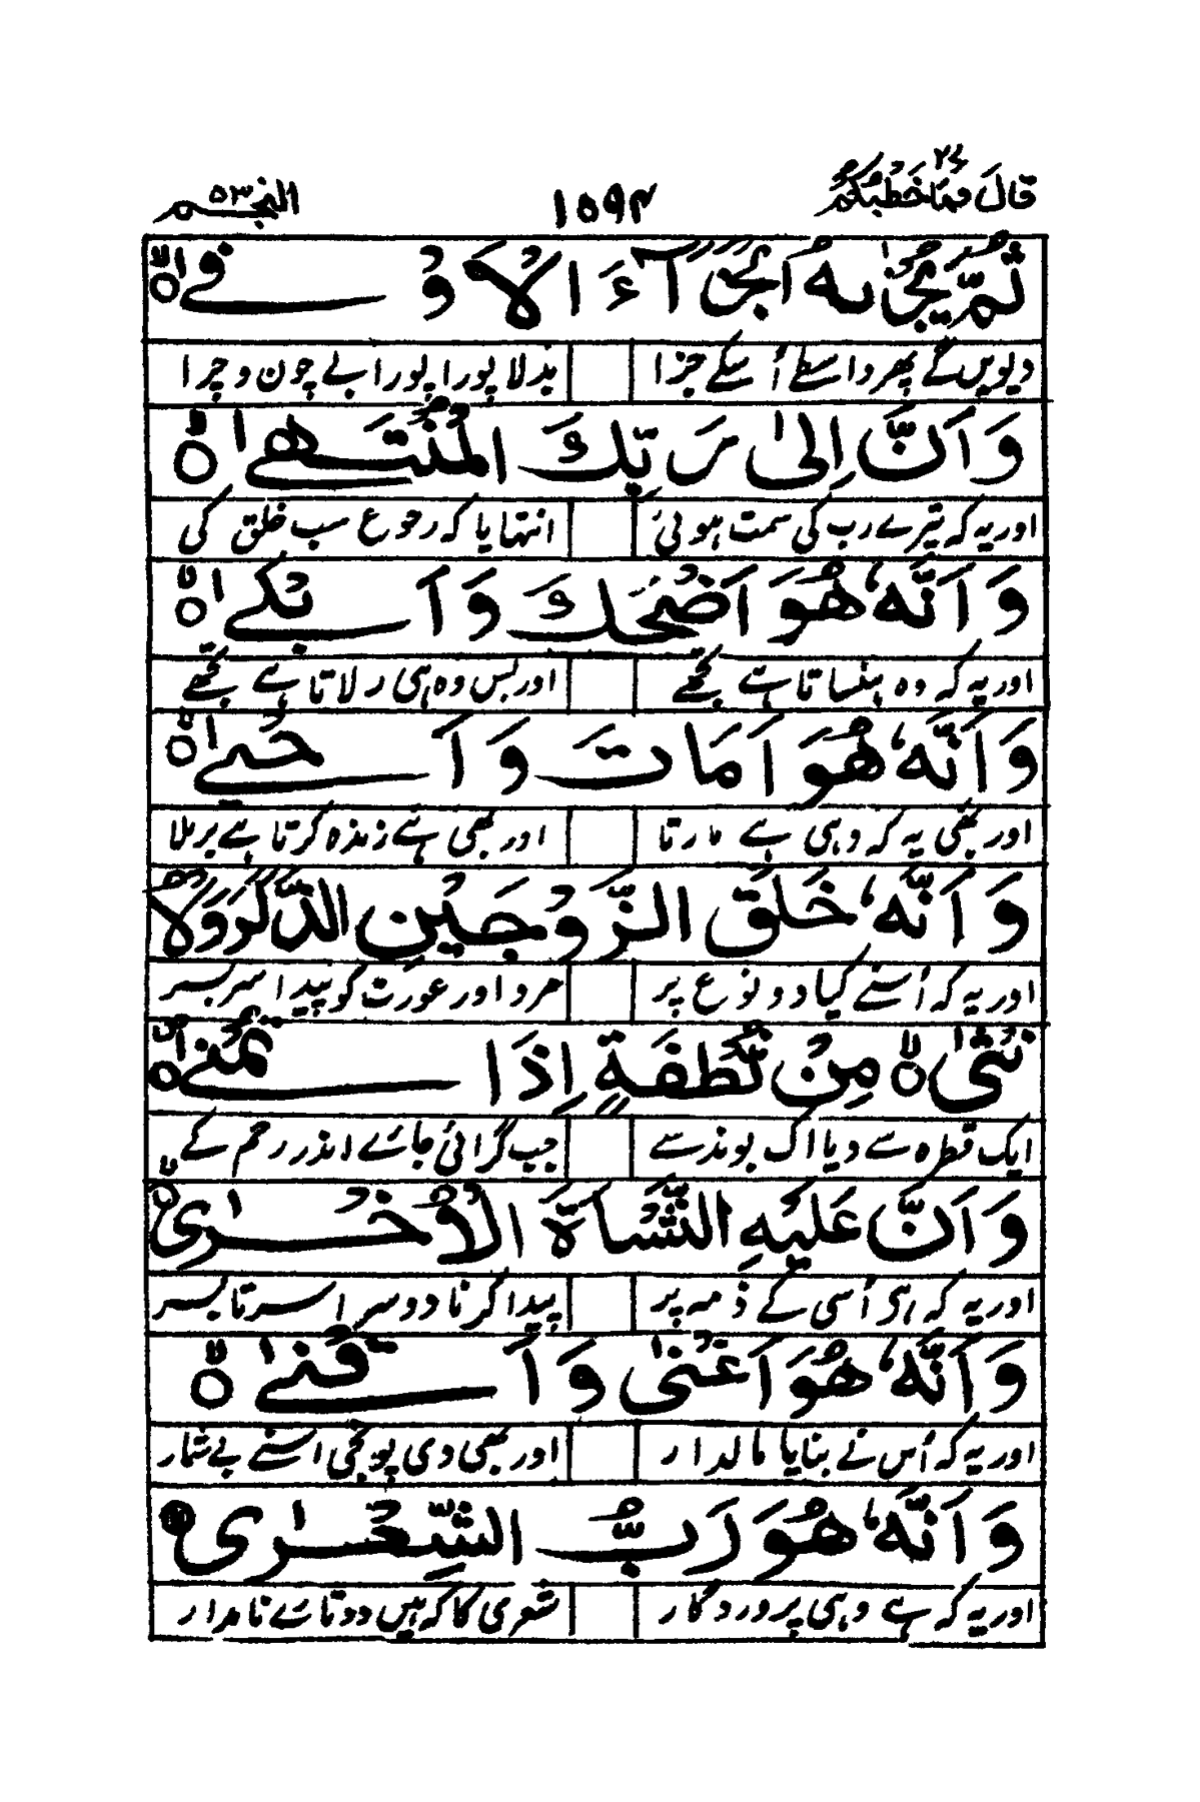 قَالَ فَمَا خَطْبُكُمْ ٢٧ ١٥٩٤ النجم ٥٣
ثُمَّ يُجْزٰىهُ الْجَزَآءَ الْاَوْفٰى ۙ
دیویں گے پھر واسطے اُسکے جزا بدلا پورا پورا بے چون و چرا
وَاَنَّ اِلٰى رَبِّكَ الْمُنْتَهٰى ۙ
اور یہ کہ تیرے رب کی سمت ہوئی انتہا یا کہ رجوع سب خلق کی
وَاَنَّهٗ هُوَ اَضْحَكَ وَاَبْكٰى ۙ
اور یہ کہ وہ ہنساتا ہے تجھے اور بس وہ ہی رلاتا ہے تجھے
وَاَنَّهٗ هُوَ اَمَاتَ وَاَحْيٰى ۙ
اور بھی یہ کہ وہی ہے مارتا اور بھی ہے زندہ کرتا ہے برملا
وَاَنَّهٗ خَلَقَ الزَّوْجَيْنِ الذَّكَرَ وَالْاُ
اور یہ کہ اُسنے کیا دو نوع پر مرد اور عورت کو پیدا سربسر
نْثٰى ۙ مِنْ نُّطْفَةٍ اِذَا تُمْنٰى ۙ
ایک قطرہ سے دیا اک بوند سے جب گرائی جائے اندر رحم کے
وَاَنَّ عَلَيْهِ النَّشْاَةَ الْاُخْرٰى ۙ
اور یہ کہ ہی اُسی کے ذمہ پر پیدا کرنا دوسرا سرتابسر
وَاَنَّهٗ هُوَ اَغْنٰى وَاَقْنٰى ۙ
اور یہ کہ اُس نے بنایا مالدار اور بھی دی پونجی اسنے بے شمار
وَاَنَّهٗ هُوَ رَبُّ الشِّعْرٰى
اور یہ کہ ہے وہی پروردگار شعری کا کہ ہیں دو تائے نامدار